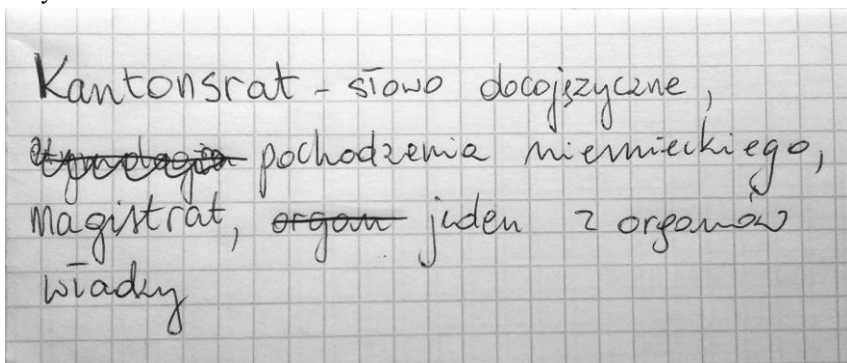 Kantonsrat - słowo docojęzyczne,
pochodzenia niemieckiego,
magistrat, organ jeden z organów
władzy